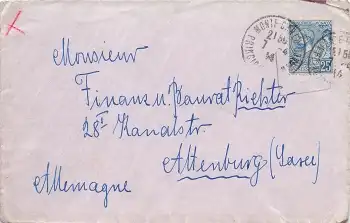 Monsieur
Finanz u. Baurat Richter
28 I Kanalstr.
Altenburg
Allemagne
MONTE-CARLO
21 50
7 -4
14
25